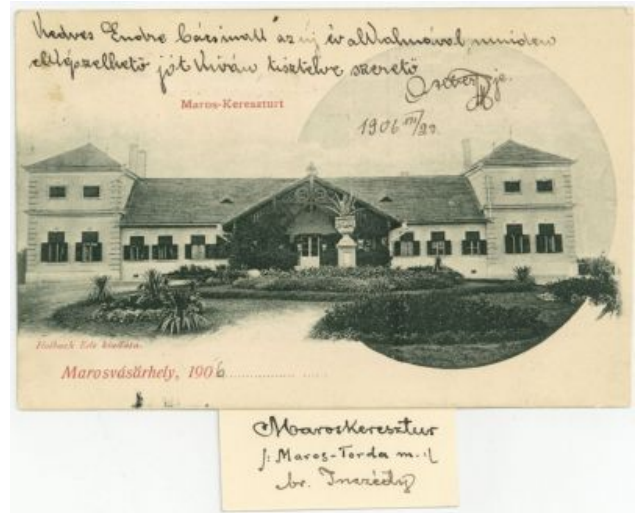 Kedves Endre bácsinak az új év alkalmával minden
elképzelhető jót kíván tisztelve szerető
öcsje.
Maros-Kereszturi
1906 XII/22.
Holbach Ede kiadása.
Marosvásárhely, 1906
Maroskeresztur
/: Maros-Torda m. :/
br. Inczédy